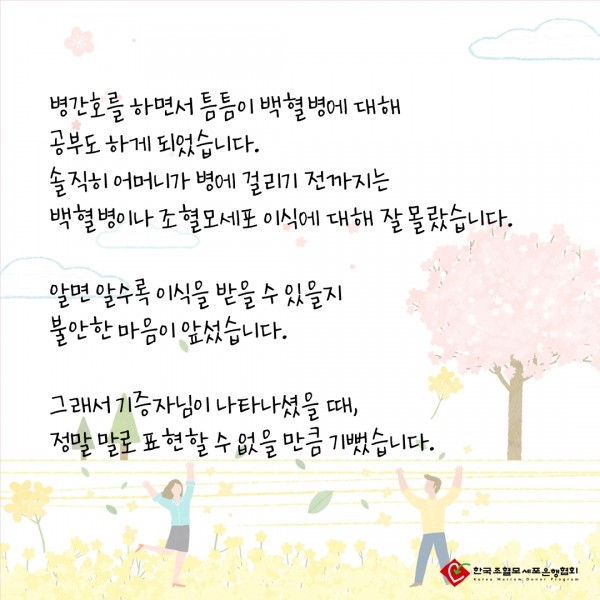 병간호를 하면서 틈틈이 백혈병에 대해
공부도 하게 되었습니다.
솔직히 어머니가 병에 걸리기 전까지는
백혈병이나 조혈모세포 이식에 대해 잘 몰랐습니다.
알면 알수록 이식을 받을 수 있을지
불안한 마음이 앞섰습니다.
그래서 기증자님이 나타나셨을 때,
정말 말로 표현할 수 없을 만큼 기뻤습니다.
한국조혈모세포은행협회
Korea Marrow Donor Program